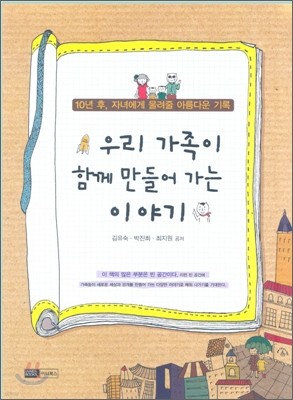 10년 후, 자녀에게 물려줄 아름다운 기록
우리 가족이
함께 만들어 가는
이야기
김유숙 · 박진희 · 최지원 공저
이 책의 많은 부분은 빈 공간이다. 이런 빈 공간에